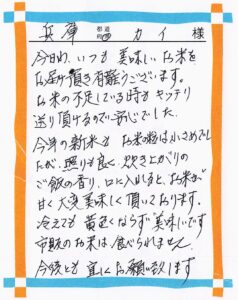 兵庫 都道府県 カイ 様
今日わ、いつも美味しいお米を
お届け頂き有難うございます。
お米の不足している時もキッチリ
送り頂けるので助じでした。
今年の新米も お米の粒は小さめでし
たが、照りも良く、炊き上がりの
ご飯の香り、口に入れると、お米が
甘く大変美味しく頂いております。
冷えても 黄色くならず美味いです
市販のお米は、食べられません。
今後とも 宜しくお願い致します